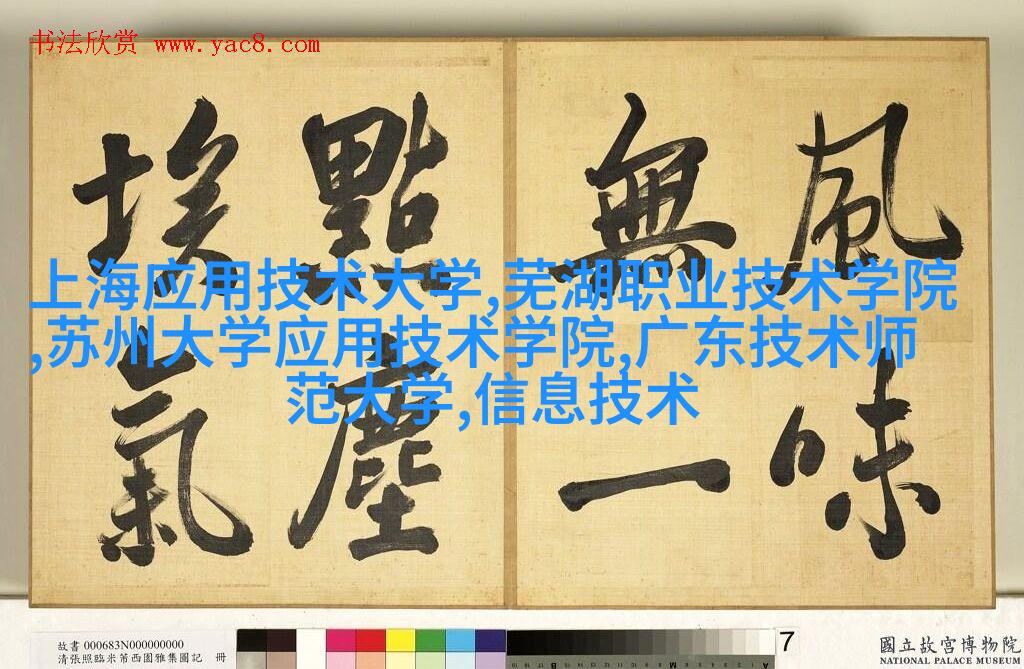 书法欣赏 www.yac8.com
風味
無一
點塵
埃氣
上海应用技术大学,芜湖职业技术学院
,苏州大学应用技术学院,广东技术师
范大学,信息技术
7
故書 000683N000000000
清張照臨米芾西園雅集圖記 冊
國立故宮博物院
NATIONAL PALACE MUSEUM